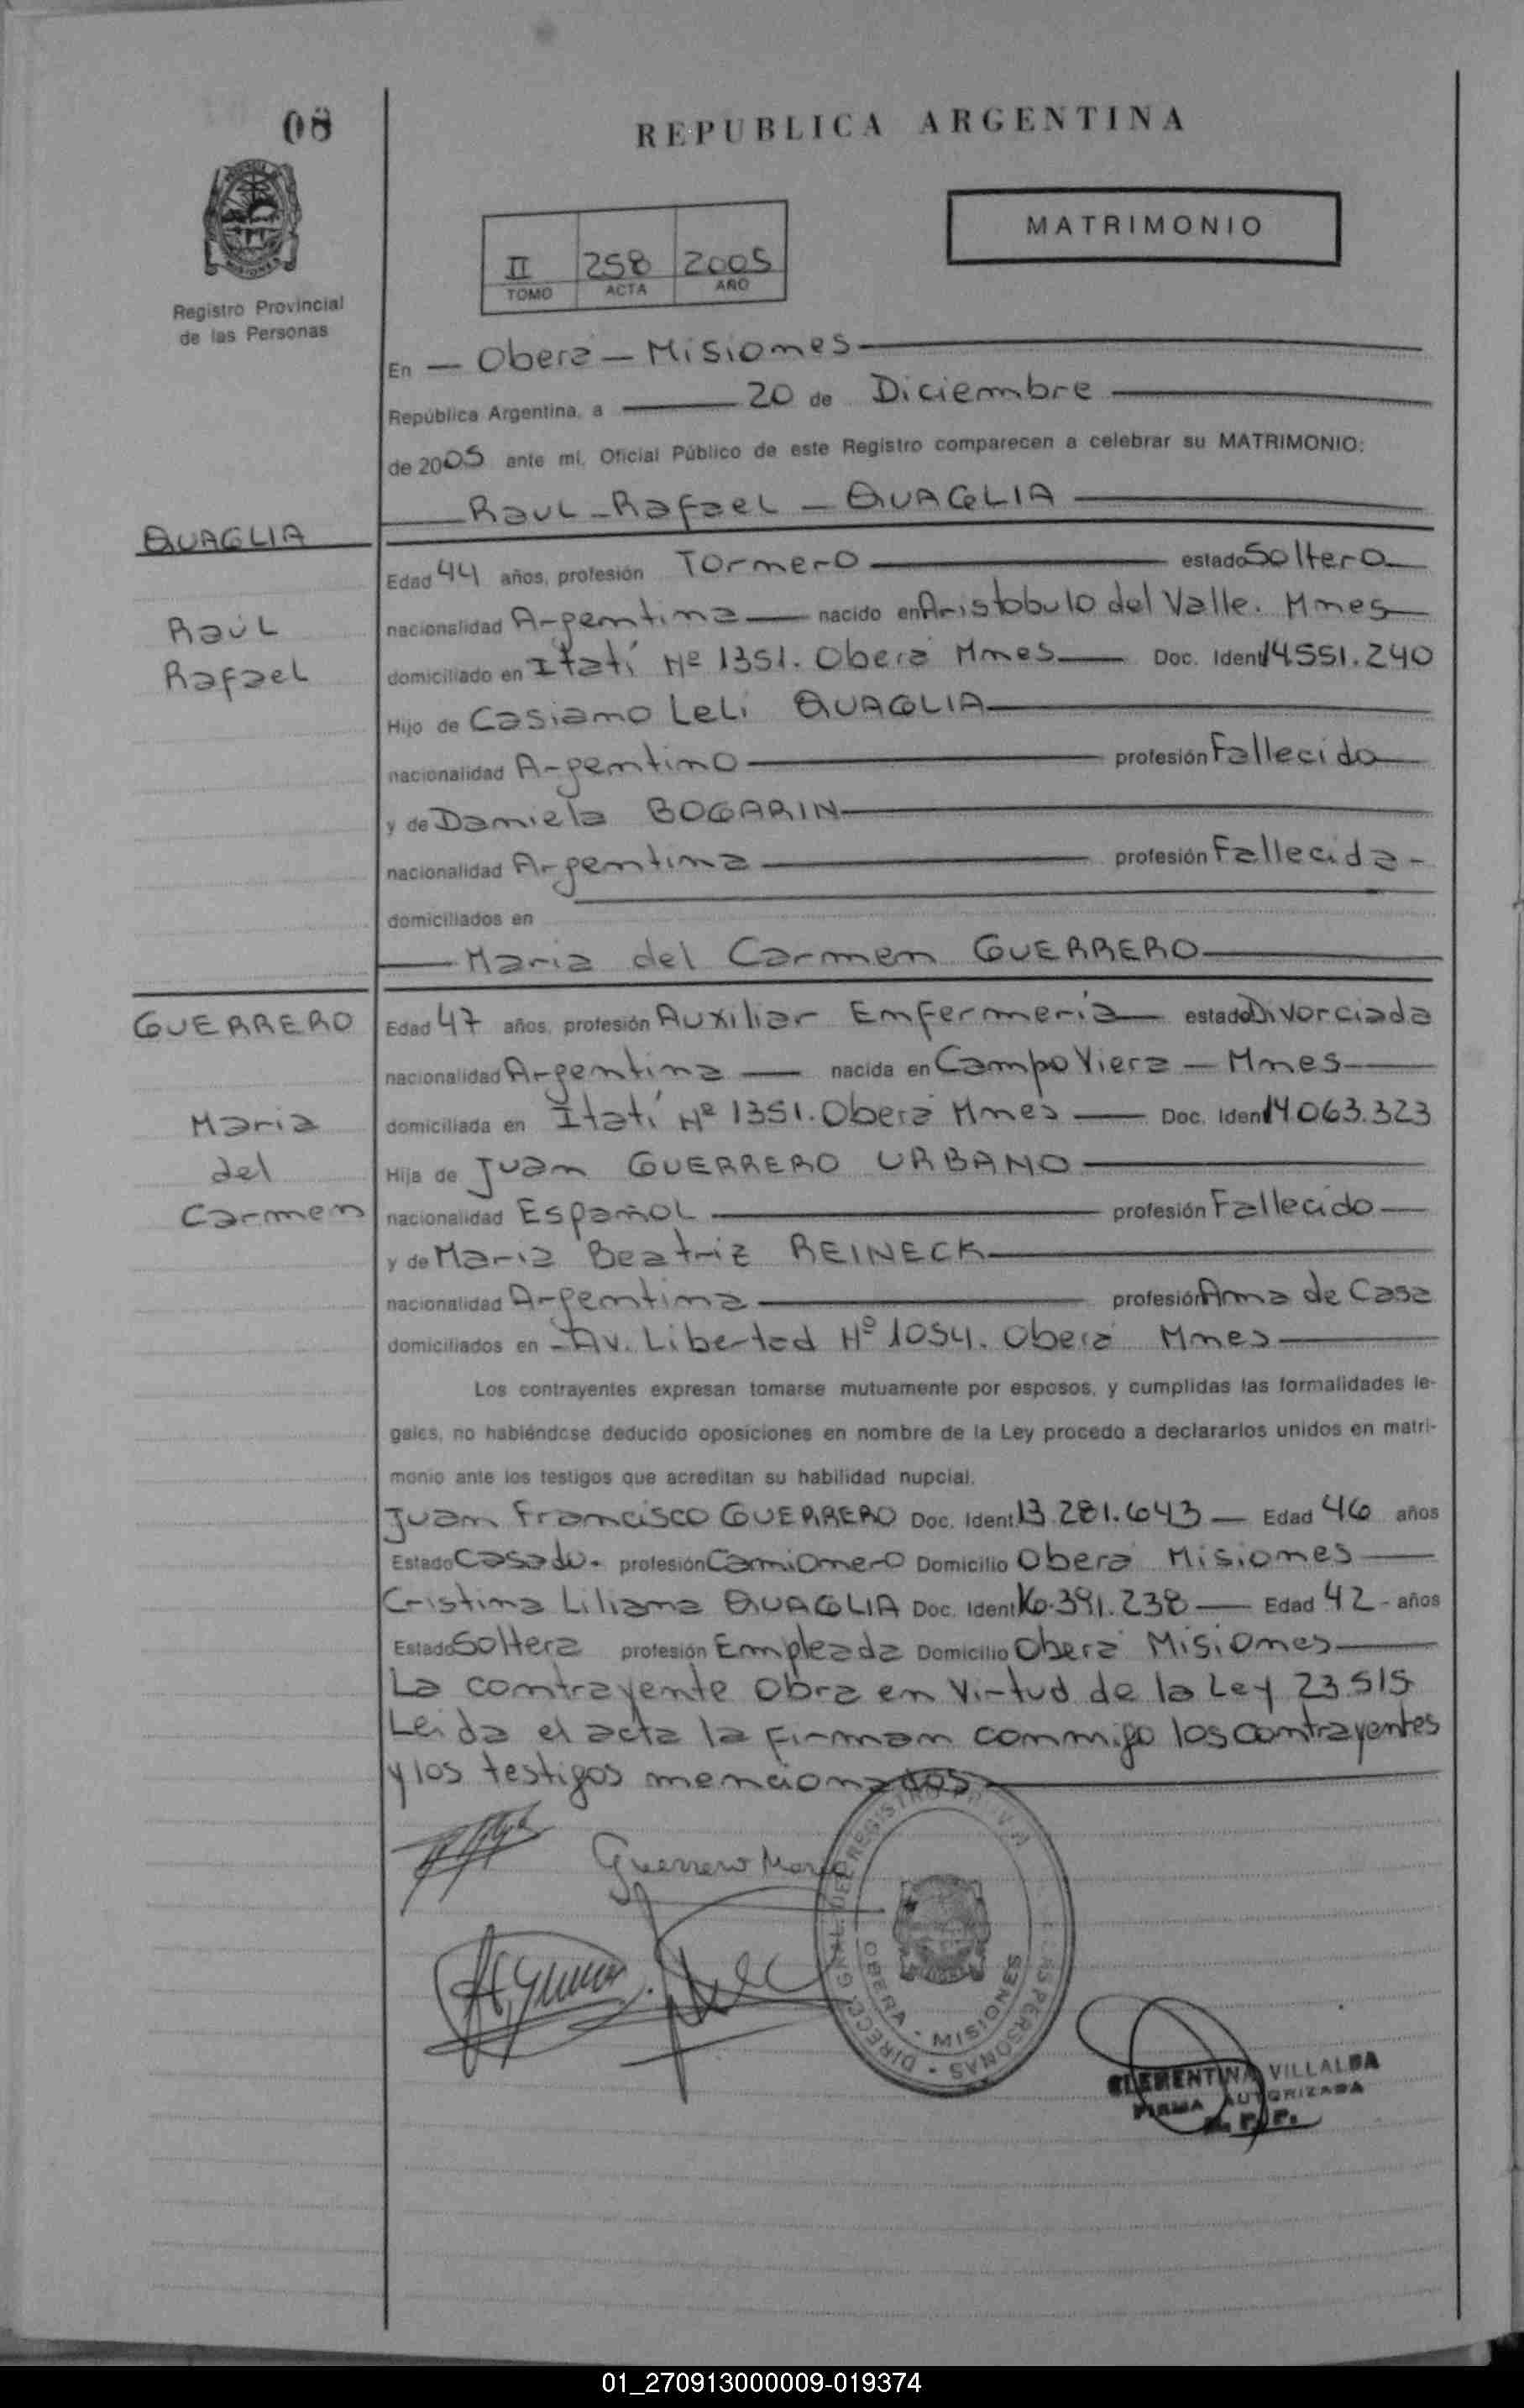 08
REPUBLICA ARGENTINA
MATRIMONIO
II 258 2005
TOMO ACTA AÑO
Registro Provincial
de las Personas
En — Oberá — Misiones —
República Argentina, a — 20 de Diciembre —
de 2005 ante mi, Oficial Público de este Registro comparecen a celebrar su MATRIMONIO:
— Raul - Rafael — QUAGLIA —
QUAGLIA
Raúl
Rafael
Edad 44 años, profesión Tornero — estado Soltero —
nacionalidad Argentina — nacido en Aristobulo del Valle. Mnes —
domiciliado en Itatí Nº 1351. Oberá Mnes — Doc. Ident 14.551.240
Hijo de Casiano Leli QUAGLIA —
nacionalidad Argentino — profesión Fallecido —
y de Daniela BOGARIN —
nacionalidad Argentina — profesión Fallecida -
domiciliados en
— Maria del Carmen GUERRERO —
GUERRERO
Maria
del
Carmen
Edad 47 años, profesión Auxiliar Enfermería — estado Divorciada
nacionalidad Argentina — nacida en Campo Viera — Mnes —
domiciliada en Itatí Nº 1351. Oberá Mnes — Doc. Ident 14.063.323
Hija de Juan GUERRERO URBANO —
nacionalidad Español — profesión Fallecido —
y de Maria Beatriz REINECK —
nacionalidad Argentina — profesión Ama de Casa
domiciliados en - Av. Libertad Nº 1054. Oberá Mnes —
Los contrayentes expresan tomarse mutuamente por esposos, y cumplidas las formalidades le-
gales, no habiéndose deducido oposiciones en nombre de la Ley procedo a declararlos unidos en matri-
monio ante los testigos que acreditan su habilidad nupcial.
Juan Francisco GUERRERO Doc. Ident. 13.281.643 — Edad 46 años
Estado Casado. profesión Camionero Domicilio Oberá Misiones —
Cristina Liliana QUAGLIA Doc. Ident 16.391.238 — Edad 42 - años
Estado Soltera profesión Empleada Domicilio Oberá Misiones —
La contrayente obra en virtud de la Ley 23.515
Leida el acta la firman conmigo los contrayentes
y los testigos mencionados —
Guerrero Maria
DIRECC. GRAL. DEL REGISTRO PROV. DE LAS PERSONAS
OBERA - MISIONES
CLEMENTINA VILLALBA
FIRMA AUTORIZADA
R. P. P.
01_270913000009-019374